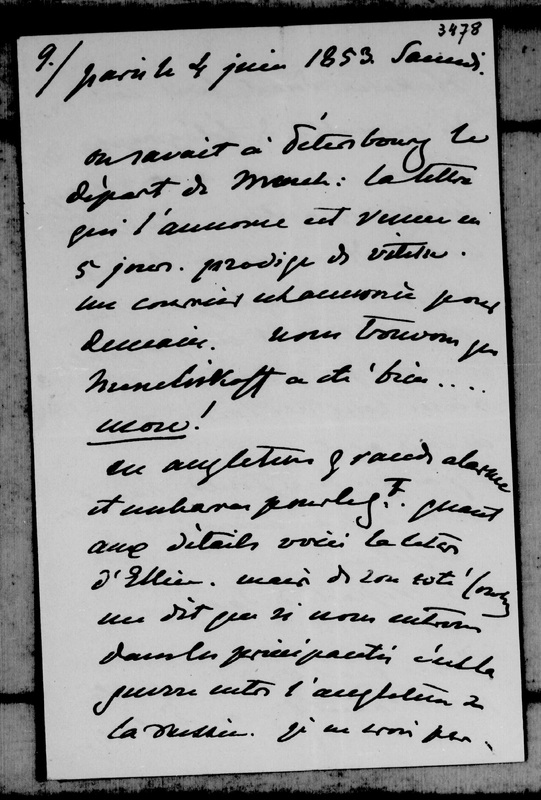 3478
9./ Paris le 4 juin 1853. Samedi.
on savait à Pétersbourg le
départ de Mench: la lettre
qui l'annonce est venue en
5 jours. prodige de vitesse.
un courrier est annoncé pour
demain. nous trouvons que
Menchikoff a été bien....
mou!
en angleterre grande alarme
et embarras pour le g.t. quant
aux détails voici la lettre
d'Ellice. mais de son coté
me dit que si nous entrons
dans les principautés c'est la
guerre entre l'angleterre &
la russie. je ne crois pas.